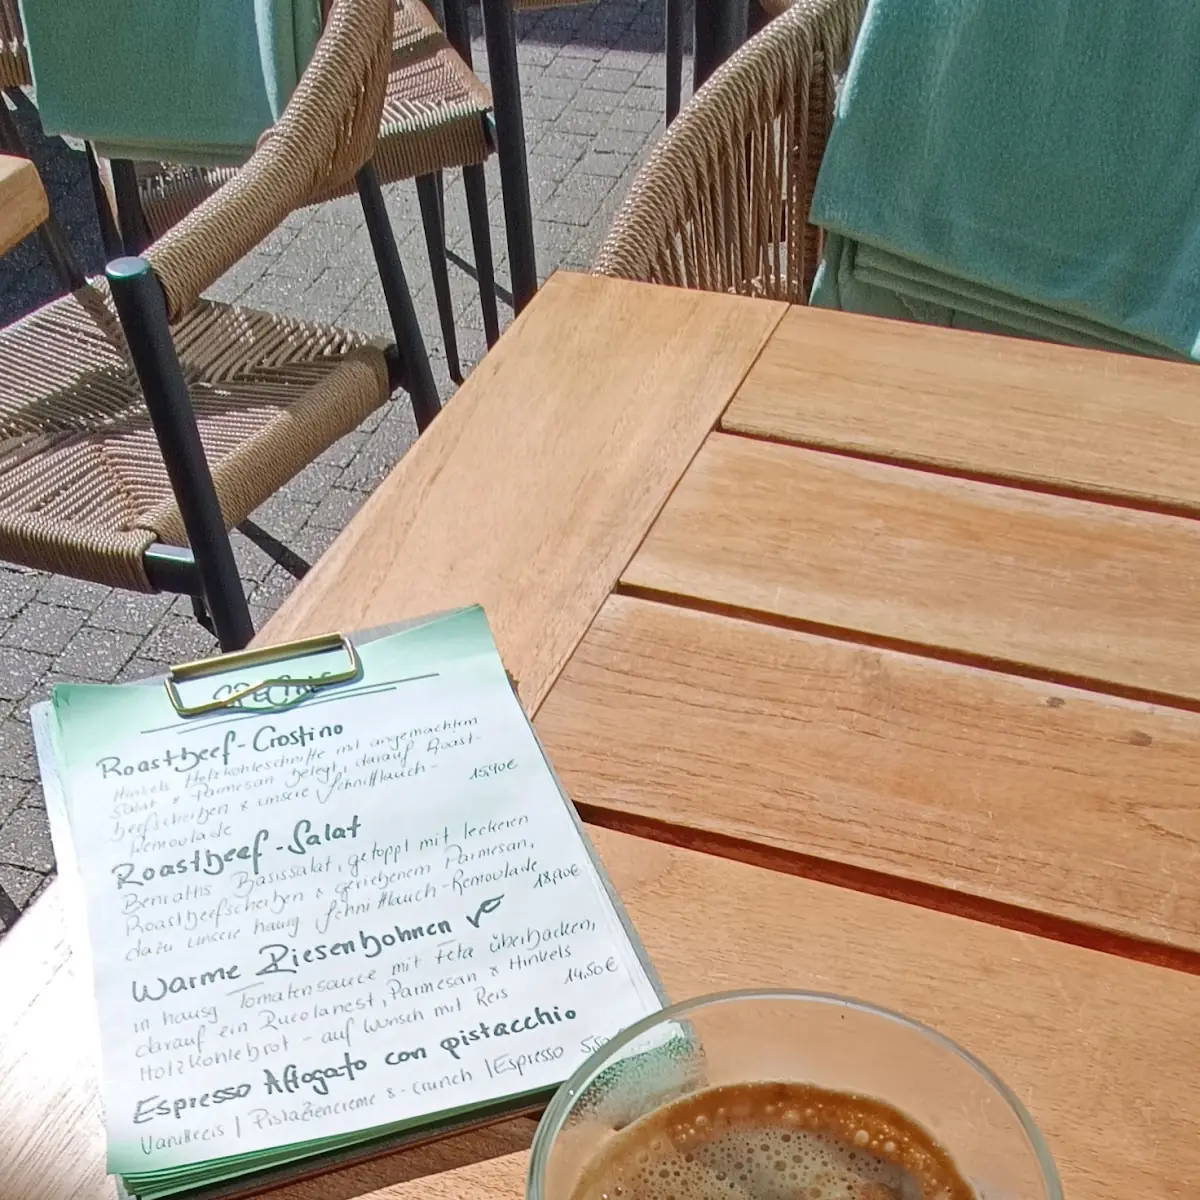 SPECIALS
Roastbeef-Crostino
Hinkels Holzkohleschnitte mit angemachtem
Salat & Parmesan belegt, darauf Roast-
beefscheiben & unsere Schnittlauch-
Remoulade 15,90€
Roastbeef-Salat
Benraths Basissalat, getoppt mit leckeren
Roastbeefscheiben & geriebenem Parmesan,
dazu unsere hausg Schnittlauch-Remoulade
18,90€
Warme Riesenbohnen
in hausg Tomatensauce mit Feta überbacken,
darauf ein Rucolanest, Parmesan & Hinkels
Holzkohlebrot - auf Wunsch mit Reis 14,50€
Espresso Affogato con pistacchio
Vanilleeis | Pistaziencreme & -crunch | Espresso